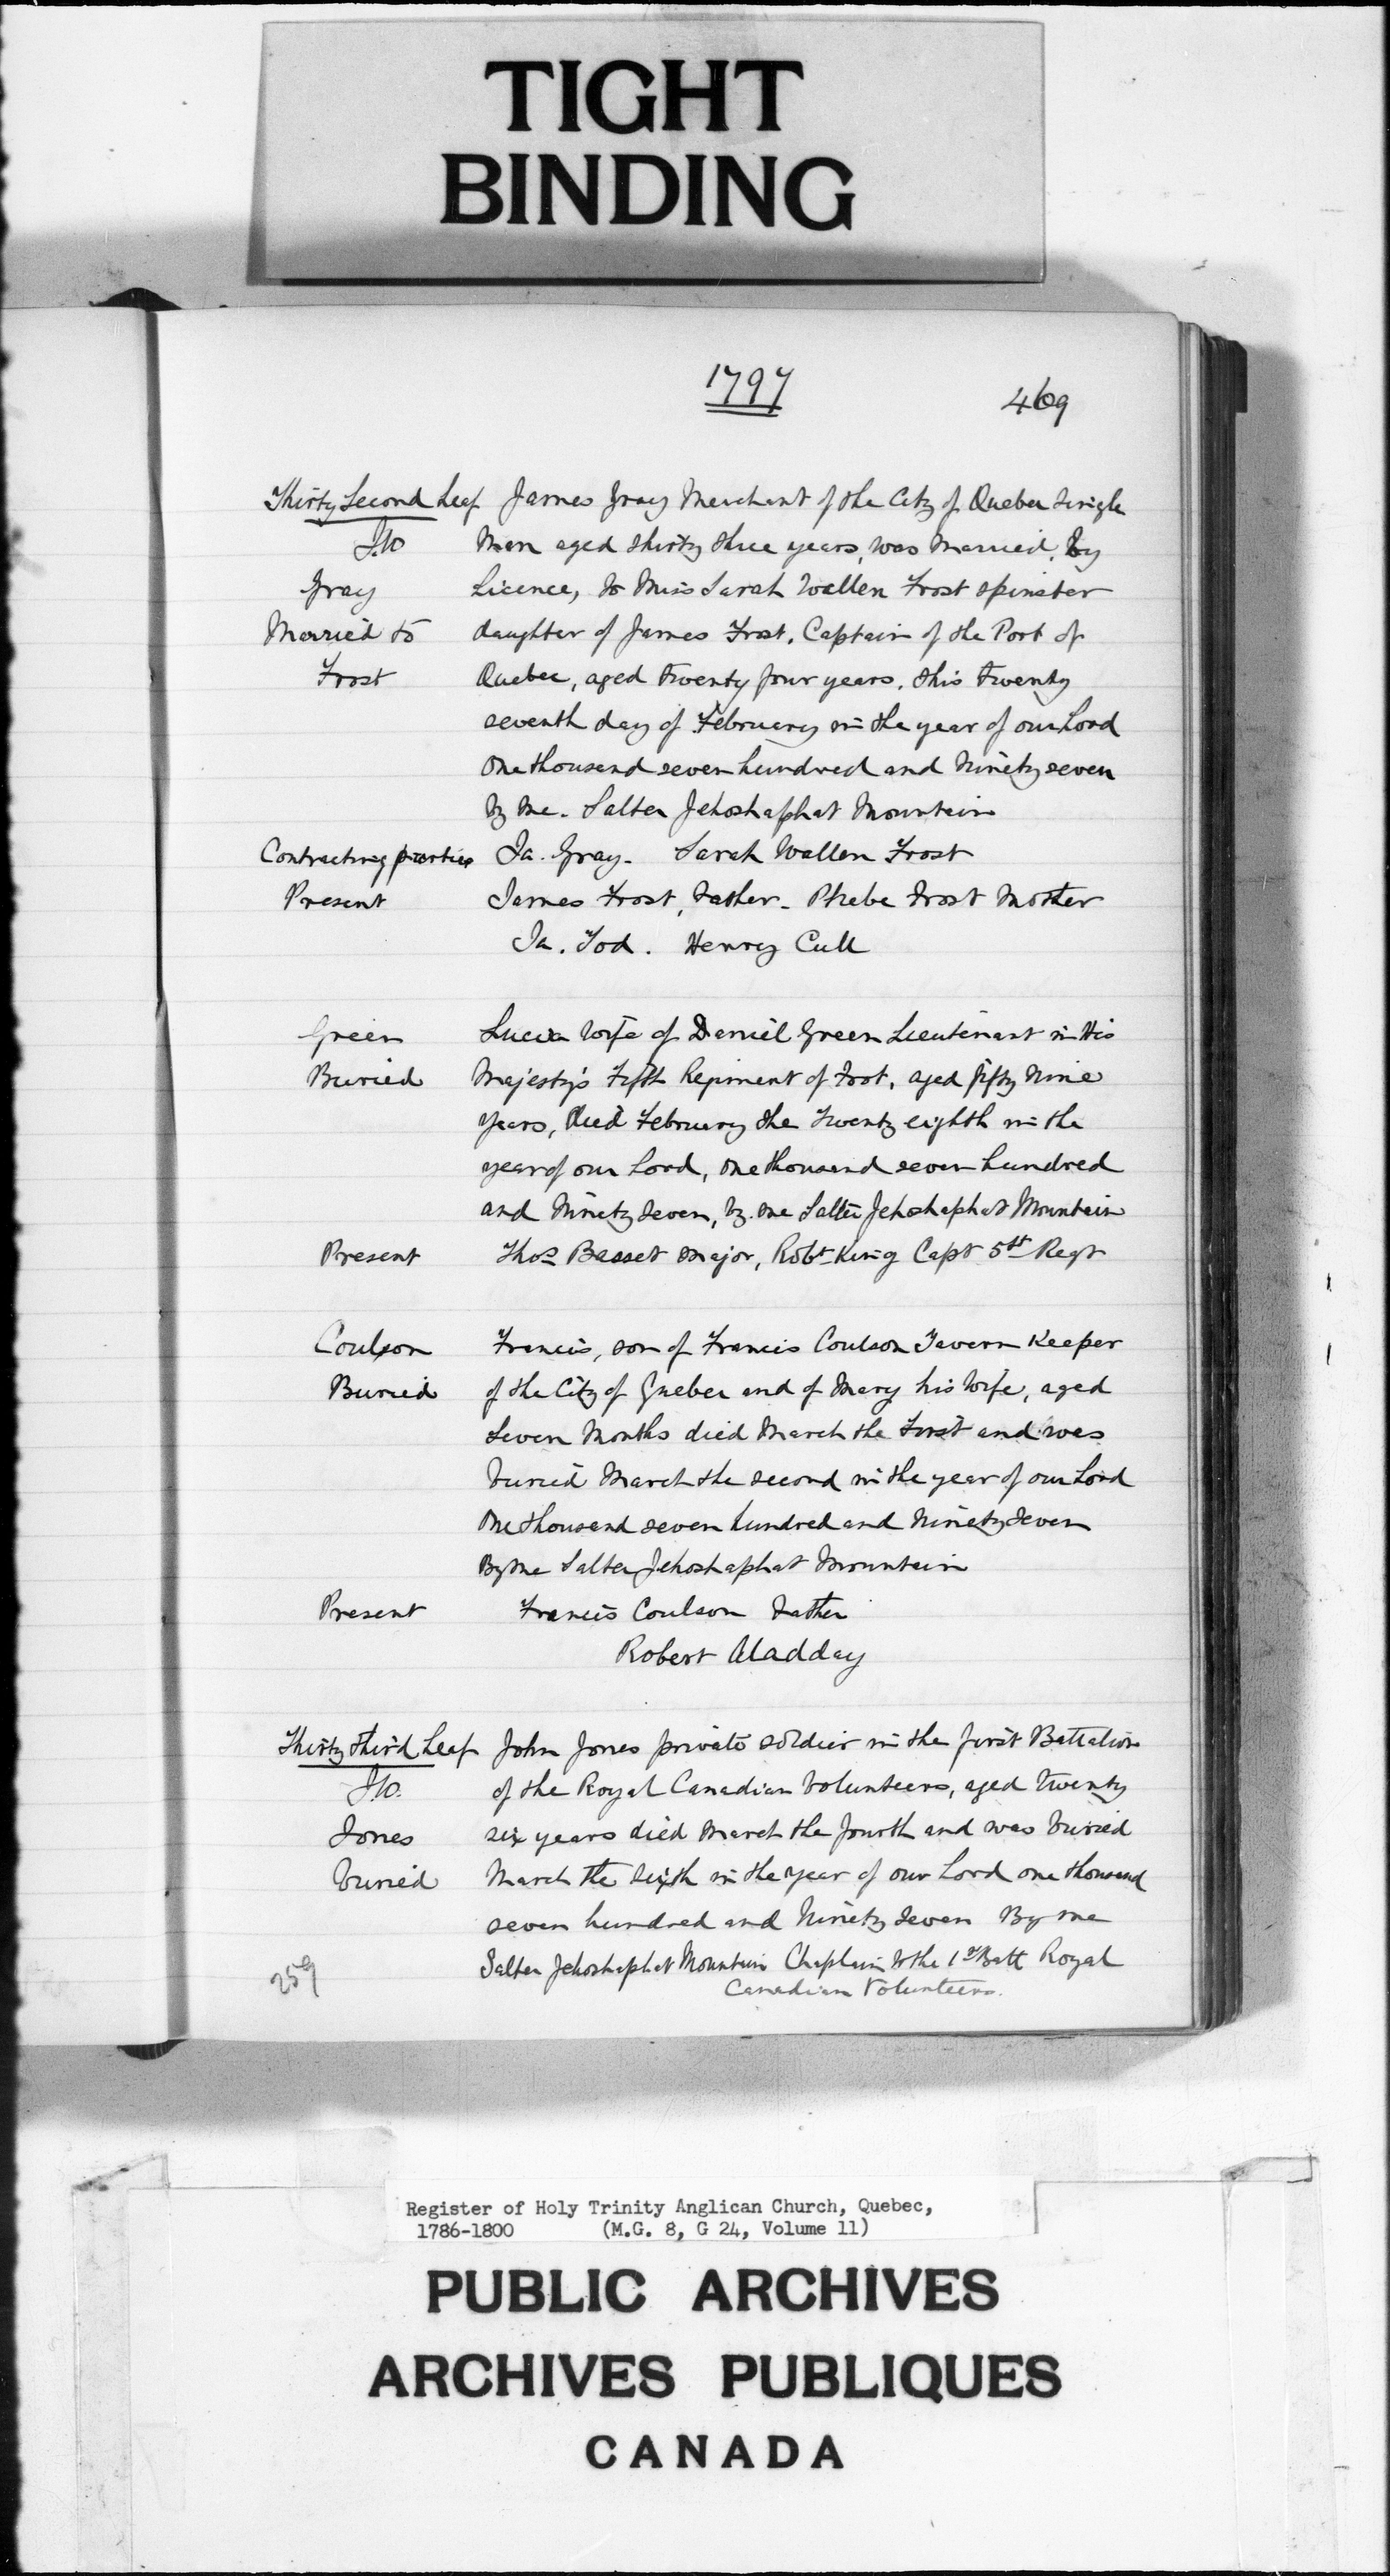 TIGHT
BINDING
1797
469
Thirty Second Leaf James Gray Merchant of the City of Quebec Single
Man aged thirty three years, was Married, by
Gray Licence, to Miss Sarah Wallen Frost spinster
Married to daughter of James Frost, Captain of the Port of
Frost Quebec, aged twenty four years, this twenty
seventh day of February in the year of our Lord
One thousand seven hundred and Ninety seven
by me. Salter Jehoshaphat Mountain
Contracting parties Ja. Gray. Sarah Wallen Frost
Present James Frost, Father - Phebe Frost Mother
Ja. Tod. Henry Cull
Green Lucia Wife of Daniel Green Lieutenant in His
Buried Majesty's Fifth Regiment of Foot, aged fifty Nine
Years, Died February the Twenty eighth in the
year of our Lord, One thousand seven hundred
and Ninety Seven, by me Salter Jehoshaphat Mountain
Present Thos Basset Major, Robt King Capt 5th Regt
Coulson Francis, son of Francis Coulson Tavern Keeper
Buried of the City of Quebec and of Mary his Wife, aged
Seven Months died March the First and was
buried March the second in the year of our Lord
One thousand seven hundred and Ninety Seven
By me Salter Jehoshaphat Mountain
Present Francis Coulson Father
Robert
Thirty third Leaf John Jones private soldier in the first Battalion
of the Royal Canadian Volunteers, aged twenty
Jones six years died March the fourth and was buried
buried March the sixth in the year of our Lord one thousand
seven hundred and Ninety Seven By me
Salter Jehoshaphat Mountain Chaplain to the 1st Batt Royal
Canadian Volunteers.
259
Register of Holy Trinity Anglican Church, Quebec,
1786-1800 (M.G. 8, G 24, Volume 11)
PUBLIC ARCHIVES
ARCHIVES PUBLIQUES
CANADA